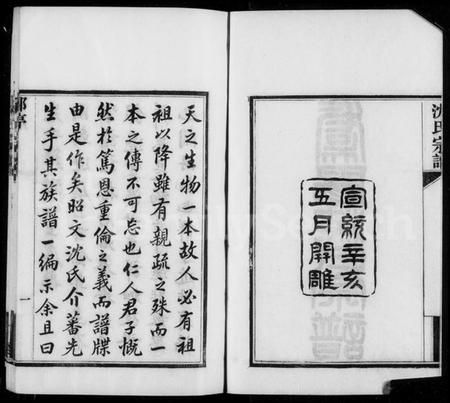 沈氏宗譜
宣統辛亥
五月開雕
天之生物一本故人必有祖
祖以降雖有親疏之殊而一
本之傳不可忘也仁人君子慨
然於篤恩重倫之義而譜牒
由是作矣昭文沈氏介蕃先
生手其族譜一編示余且曰
一